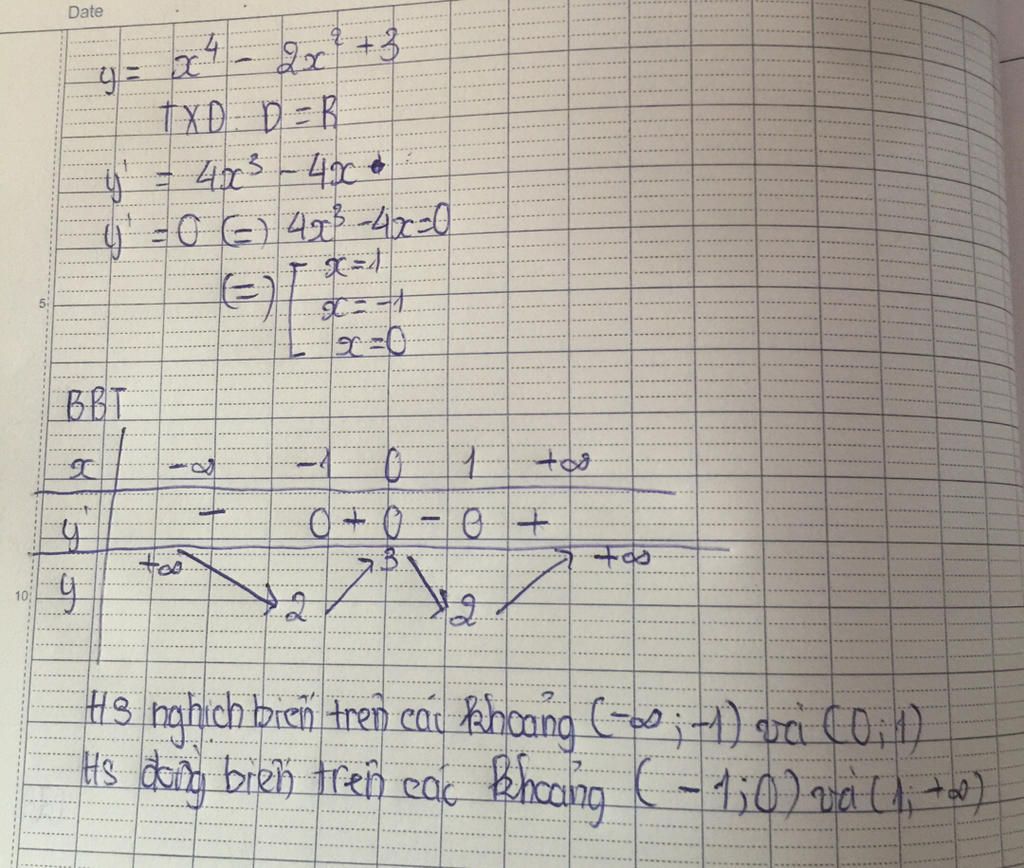 Date
y = x⁴ - 2x² + 3
TXD. D = R
y' = 4x³ - 4x
y' = 0 (=) 4x³ - 4x = 0
(=) [ x = 1
x = -1
x = 0
5
BBT
x -∞ -1 0 1 +∞
y' - 0 + 0 - 0 +
y +∞ 2 3 2 +∞
10
HS nghịch biến trên các khoảng (-∞; -1) và (0; 1)
HS đồng biến trên các khoảng (-1; 0) và (1; +∞)